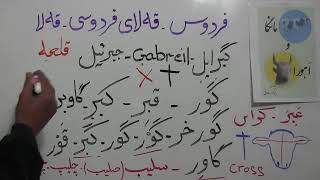 فردوس - قه لای فردوسی - قه لا
مانگا
و
گبرایل - Gabreil - جبرئیل
قلعه
گور - قبر - کبر - گاوبر
گورخر - گور - گور - کبر - قور
گاور - سلیب (صلیب) چلیپ
cross